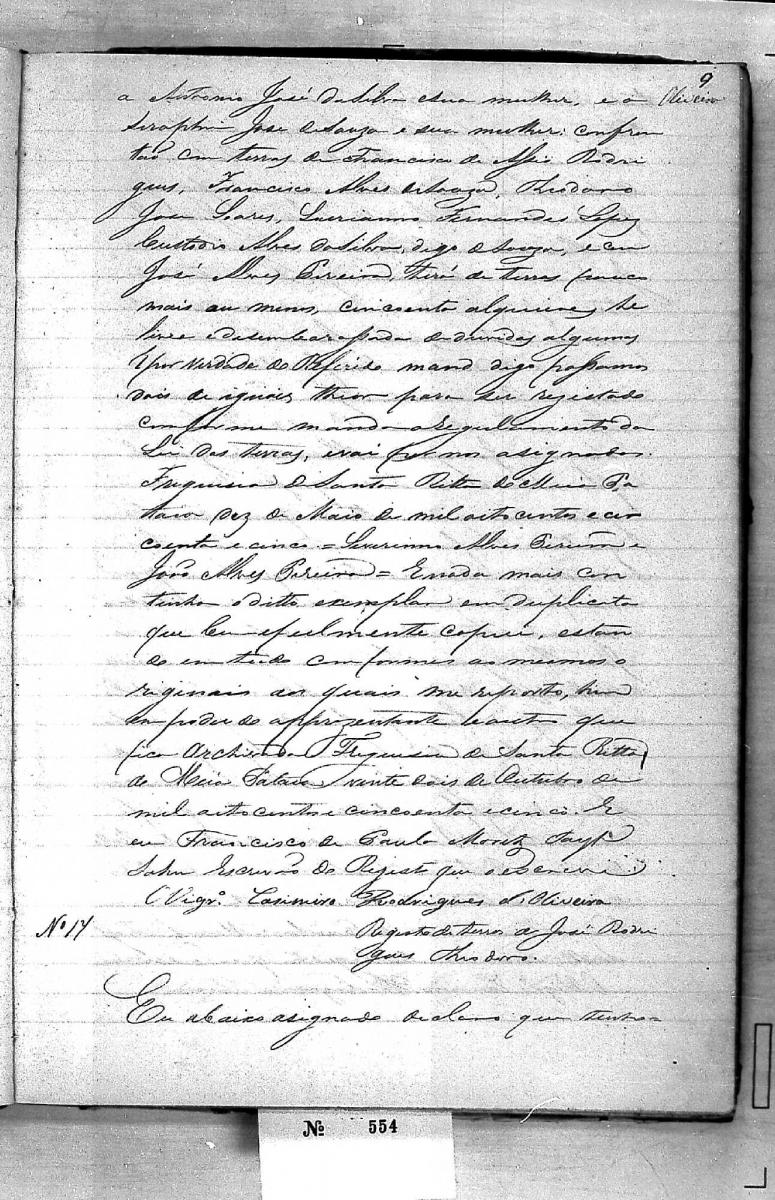 9
Oliveira
a Antonio José da Silva e sua mulher, e a
Seraphim Jose de Souza e sua mulher: confron
tão com terras de Francisco de Assis Rodri
gues, Francisco Alves de Souza, Theodoro
Jose Soares, Luerianno Fernandes Lopes
Custodio Alves da Silva, digo de Souza, e com
José Alves Pereira, terá de terras pouco
mais ou menos, cincoenta alqueires, he
livre e desembaraçada de duvidas algumas
e por verdade do Referido mand digo passamos
dois de iguais theor para ser rejestado
conforme manda o regulamento da
Lei das terras, e vai por nos asignados.
Freguesia de Santa Ritta do Meia Pa
taca dez de Maio de mil oito centos e cin
coenta e cinco = Severinno Alves Pereira e
João Alves Pereira = E nada mais con
tinha o ditto exemplar em duplicata
que eu fielmente copiei, estan
do em tudo conformes ao mesmos o
riginais aos quais me reporto, hum
em poder do apprezentante e outro que
fica Archivado Freguesia de Santa Ritta
do Meia Pataca vinte dois de Outubro de
mil oito centos e cincoenta e cinco. E
eu Francisco de Paula
Escrivão do Rejisto que o escrevi
O Vigrº. Casimiro Rodrigues d'Oliveira
Nº 14
Registo de terras de José Rodri
gues Theodoro.
Eu abaixo asignado declaro que tenho
Nº 554